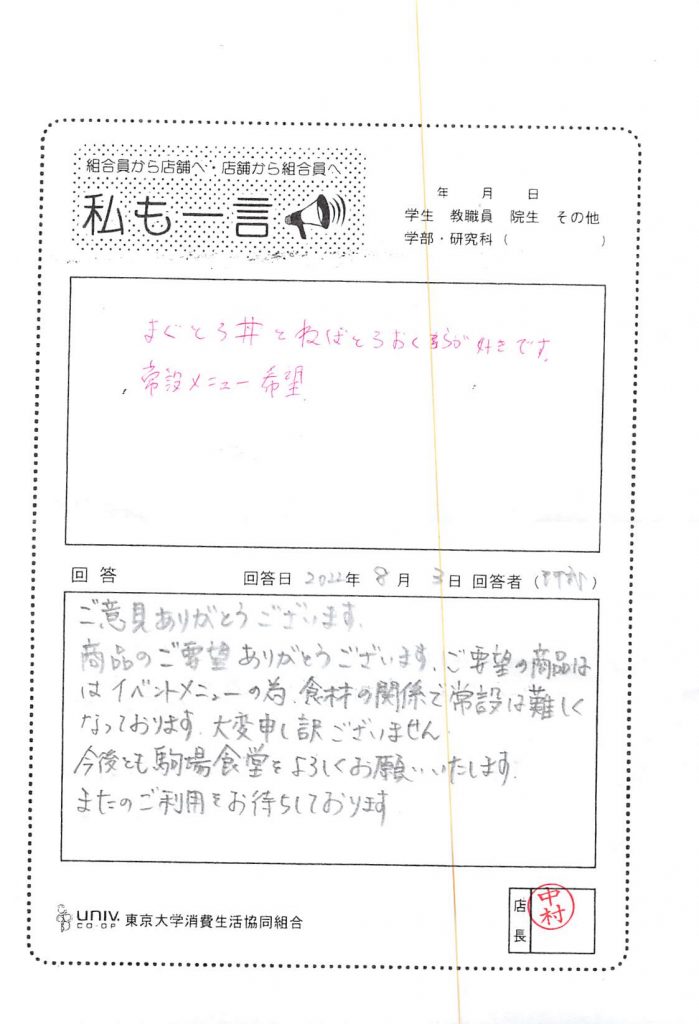 組合員から店舗へ・店舗から組合員へ
私も一言
年 月 日
学生 教職員 院生 その他
学部・研究科( )
まぐとろ丼とねばとろおくらが好きです。
常設メニュー希望
回答 回答日 2022年 8月 3日 回答者( )
ご意見ありがとうございます。
商品のご要望ありがとうございます。ご要望の商品は
はイベントメニューの為、食材の関係で常設は難しく
なっております。大変申し訳ございません。
今後とも駒場食堂をよろしくお願いいたします。
またのご利用をお待ちしております
UNIV. CO-OP 東京大学消費生活協同組合
店長 中村